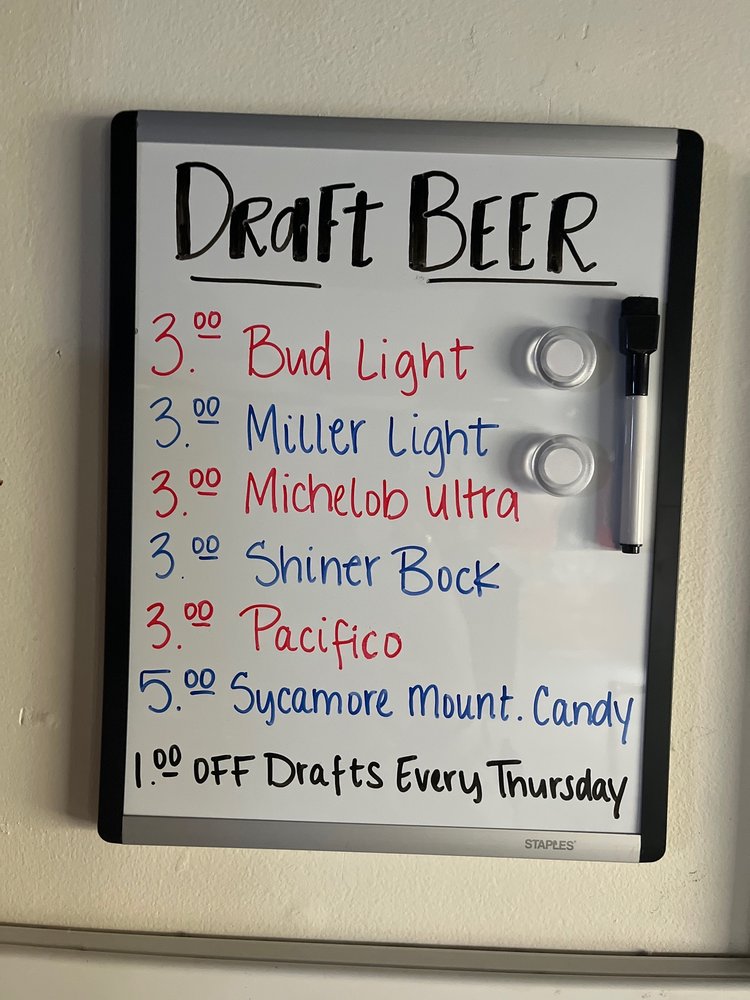 Draft BEER
3.00 Bud Light
3.00 Miller Light
3.00 Michelob Ultra
3.00 Shiner Bock
3.00 Pacifico
5.00 Sycamore Mount. Candy
1.00 OFF Drafts Every Thursday
STAPLES